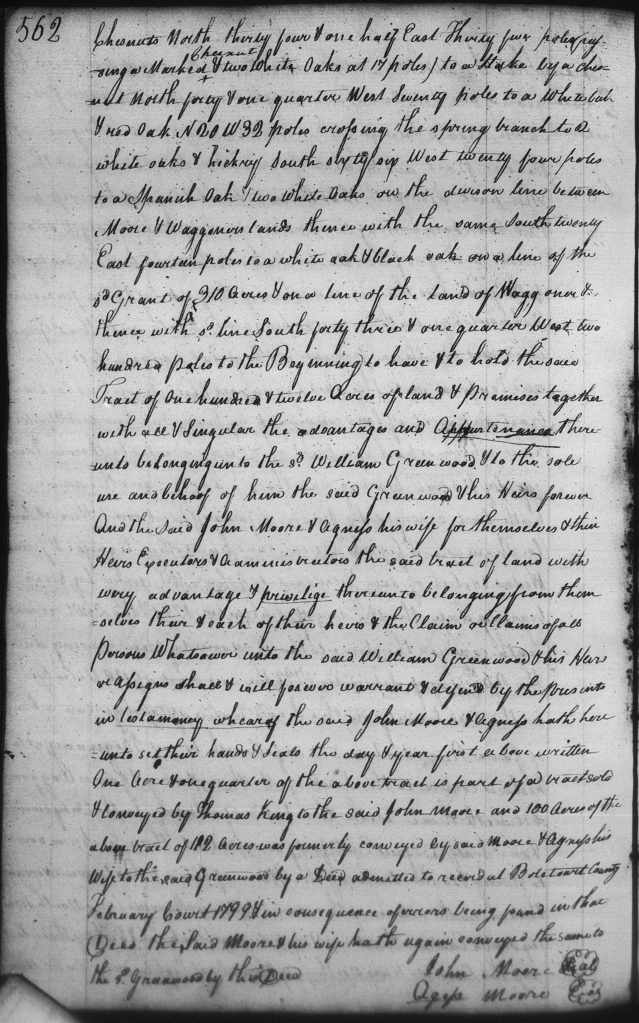 562
Chesnuts North thirty four & one half East Thirty four poles pas-
=sing a Marked Chesnut & two White Oaks at 17 poles) to a Stake by a ches-
nut North forty & one quarter West Seventy poles to a White oak
& red Oak N 20 W 32 poles crossing the spring branch to 2
white oaks & hickry South sixty six West twenty four poles
to a Spanish Oak & two White Oaks on the devison line between
Moore & Waggoners lands thence with the same South twenty
East fourteen poles to a white oak & black oak on a line of the
sd Grant of 310 Acres & on a line of the land of Waggoner &
thence with sd line South forty three & one quarter West two
hundred poles to the Beginning to have & to hold the said
Tract of One hundred & twelve Acres of land & premises together
with all & Singular the advantages and Appurtenances there
unto belonging unto the sd William Greenwood & to the sole
use and behoof of him the said Greenwood & his Heirs forever
And the said John Moore & Agness his wife for themselves & their
Heirs Executors & administrators the said tract of land with
every advantage & privilige thereunto belonging from them
=selves their & each of their heirs & the Claim or Claims of all
persons Whatsoever unto the said William Greenwood & his Heirs
or assigns shall & will forever warrant & defend by the presents
in testamoney whereof the said John Moore & Agness hath here
=unto set their hands & Seals the day & year first above written
One Acre & one quarter of the above tract is part of a tract sold
& Conveyed by Thomas King to the said John Moore and 100 Acres of the
above tract of 112 Acres was formerly conveyed by said Moore & Agness his
Wife to the said Greenwood by a Deed admitted to record at Botetourt County
February Court 1799 & in consequence of errors being found in that
Deed the Said Moore & his wife hath again conveyed the same to
the sd Greenwood by this Deed John Moore Seal
Agess Moore Seal